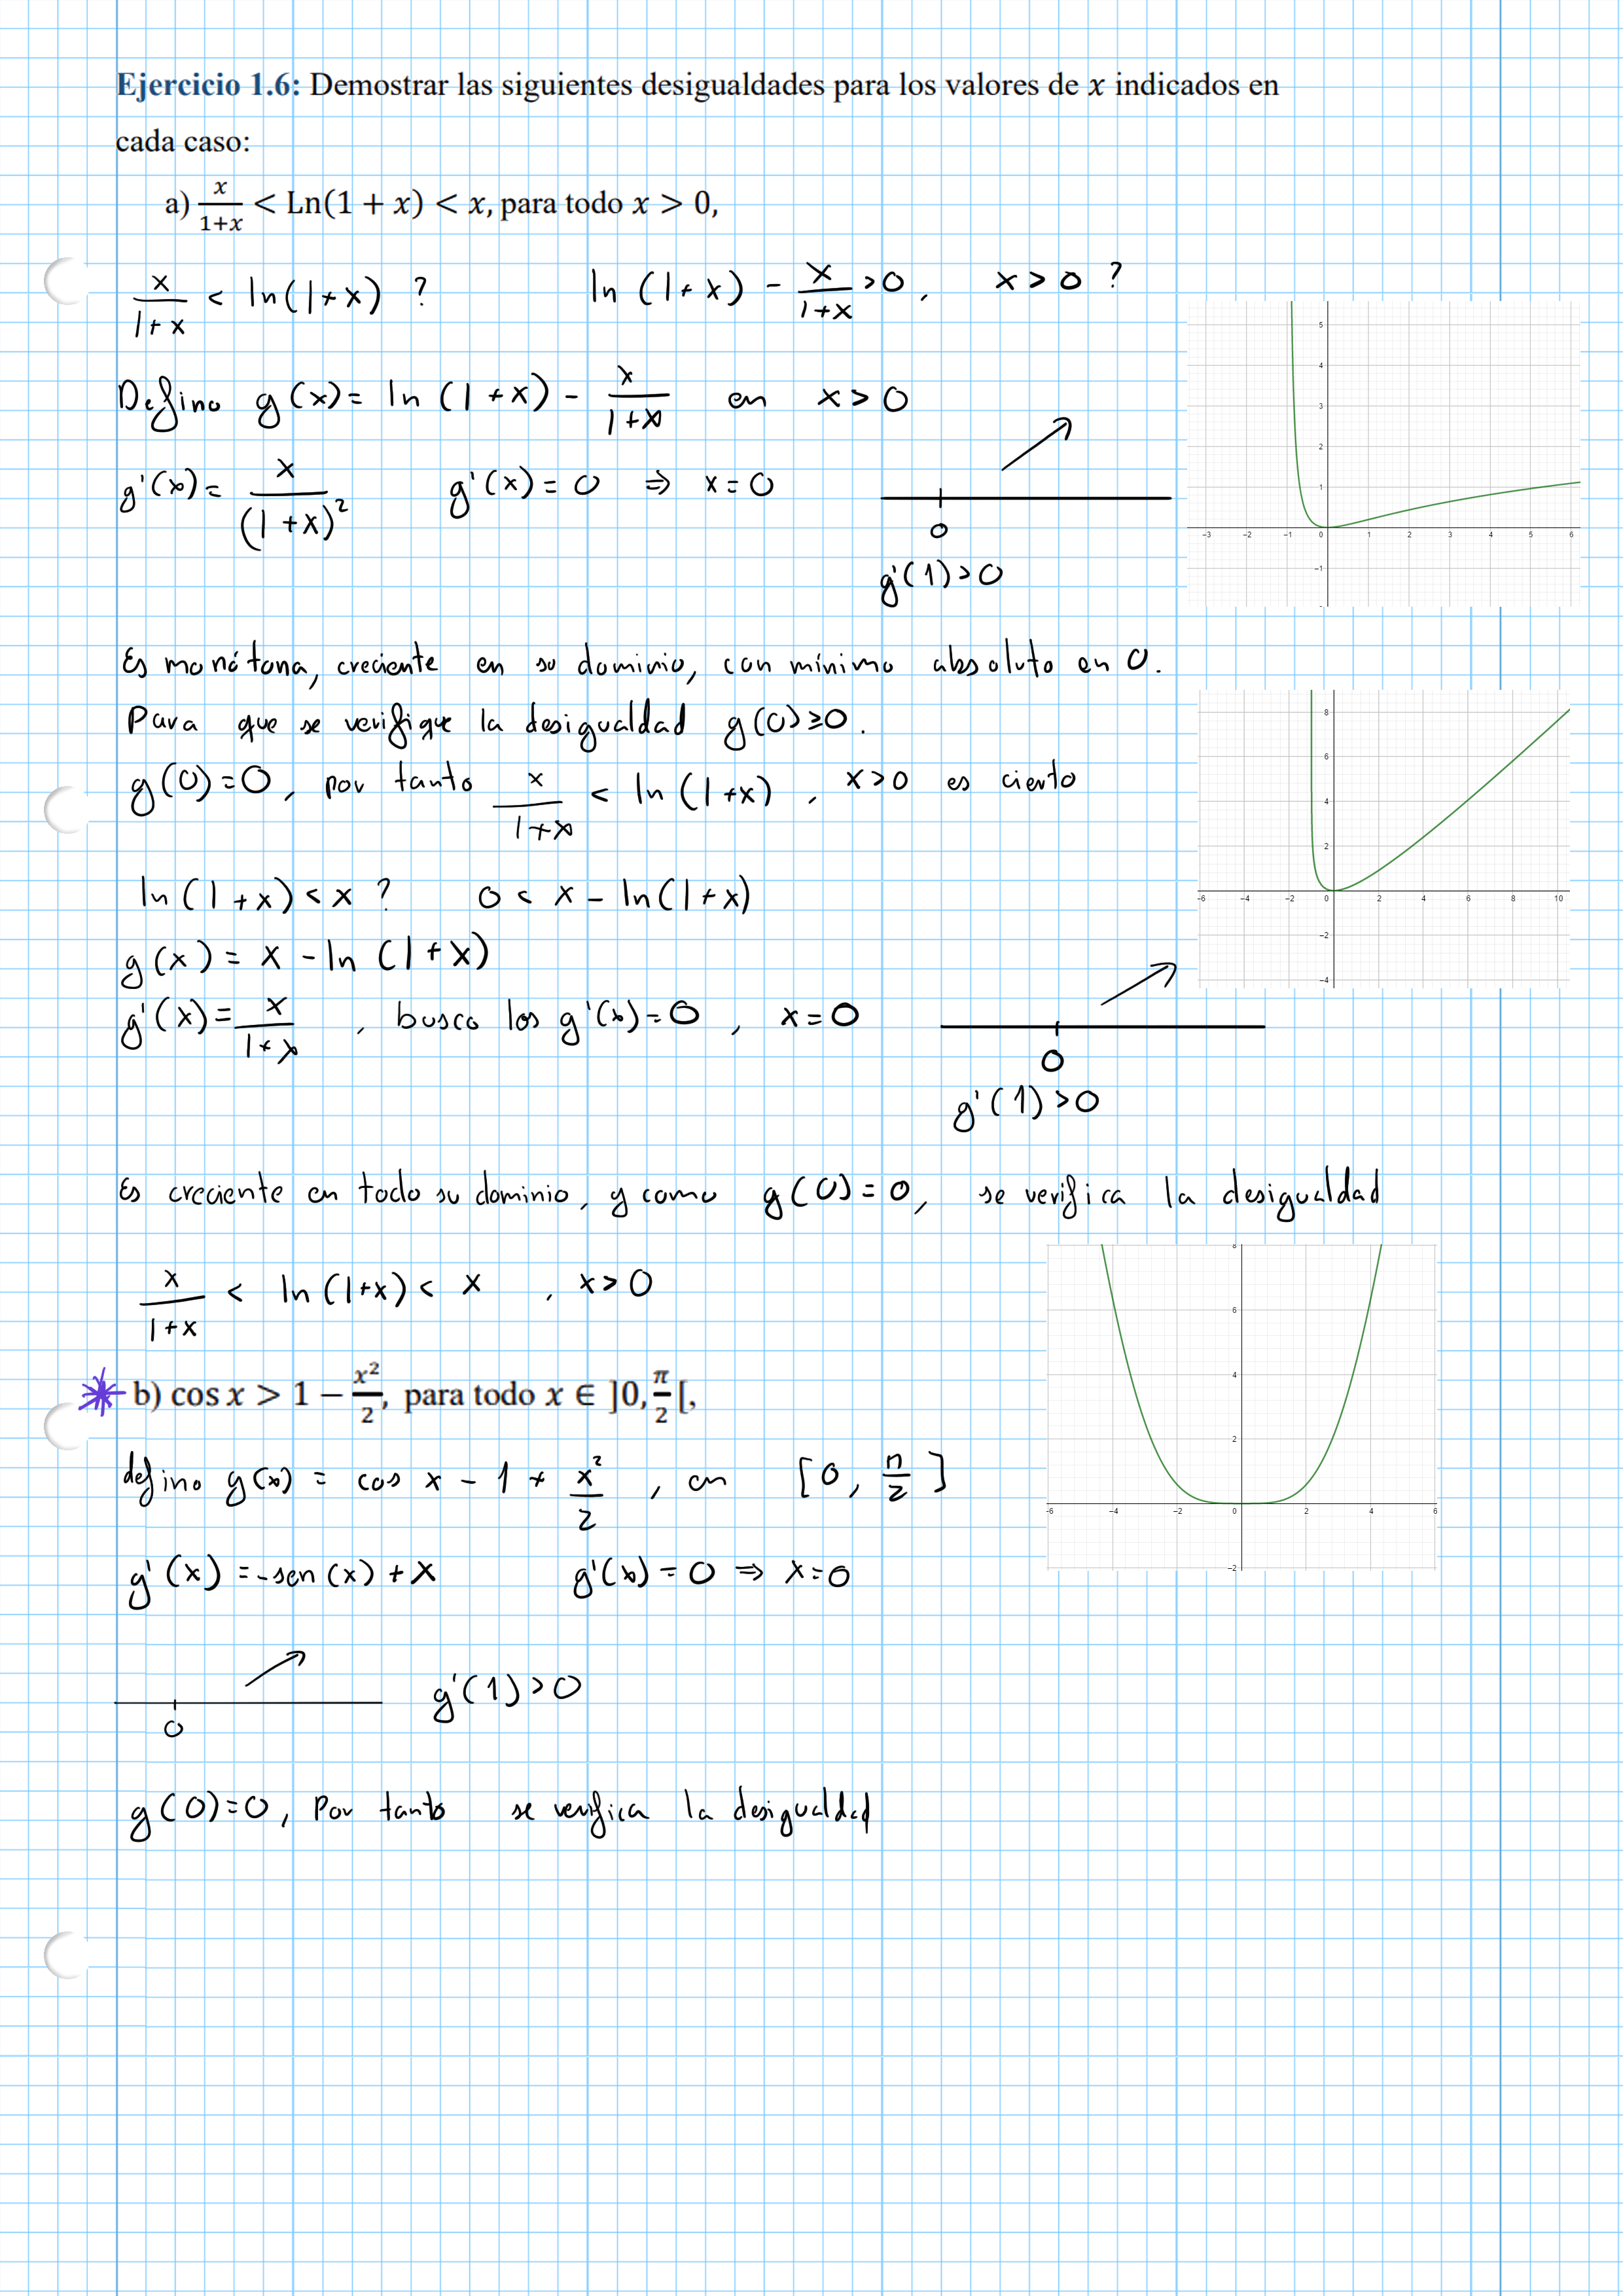 Ejercicio 1.6: Demostrar las siguientes desigualdades para los valores de x indicados en
cada caso:
a) x/(1+x) < Ln(1 + x) < x, para todo x > 0,
x/(1+x) < ln(1+x) ? ln (1+x) - x/(1+x) > 0, x > 0 ?
Defino g(x) = ln (1+x) - x/(1+x) en x > 0
g'(x) = x/(1+x)² g'(x) = 0 ⇒ x = 0
0
g'(1) > 0
5
4
3
2
1
-3 -2 -1 0 1 2 3 4 5 6
-1
Es monótona, creciente en su dominio, con mínimo absoluto en 0.
Para que se verifique la desigualdad g(0) ≥ 0.
g(0) = 0, por tanto x/(1+x) < ln (1+x), x > 0 es cierto
8
6
4
2
-6 -4 -2 0 2 4 6 8 10
-2
-4
ln(1+x) < x ? 0 < x - ln(1+x)
g(x) = x - ln (1+x)
g'(x) = x/(1+x), busco los g'(x) = 0, x = 0
0
g'(1) > 0
Es creciente en todo su dominio, y como g(0) = 0, se verifica la desigualdad
x/(1+x) < ln (1+x) < x, x > 0
8
6
4
2
-6 -4 -2 0 2 4 6
-2
* b) cos x > 1 − x²/2, para todo x ∈ ]0, π/2[,
defino g(x) = cos x - 1 + x²/2, en [0, π/2]
g'(x) = -sen(x) + x g'(x) = 0 ⇒ x = 0
0
g'(1) > 0
g(0) = 0, Por tanto se verifica la desigualdad